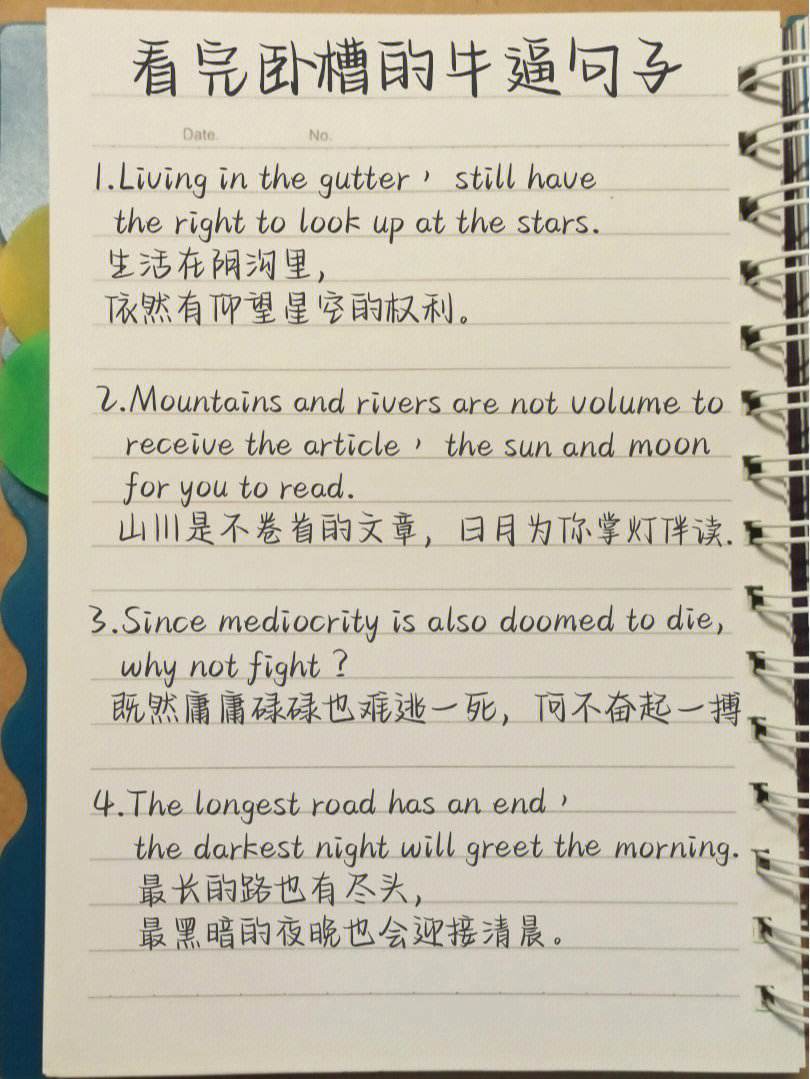 看完卧槽的牛逼句子
Date. No.
1.Living in the gutter， still have
the right to look up at the stars.
生活在阴沟里，
依然有仰望星空的权利。
2.Mountains and rivers are not volume to
receive the article， the sun and moon
for you to read.
山川是不卷首的文章，日月为你掌灯伴读.
3.Since mediocrity is also doomed to die,
why not fight?
既然庸庸碌碌也难逃一死，何不奋起一搏
4.The longest road has an end，
the darkest night will greet the morning.
最长的路也有尽头，
最黑暗的夜晚也会迎接清晨。